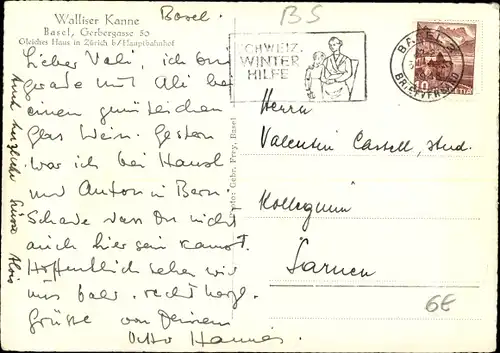 Walliser Kanne
Basel, Gerbergasse 50
Gleiches Haus in Zürich b/Hauptbahnhof
Basel.
BS
Lieber Vali, ich bin
gerade mit Ali bei
einem gemütlichen
Glas Wein. Gestern
war ich bei Hansl
und Anton in Bern.
Schade dass Du nicht
auch hier sein kannst.
Hoffentlich sehen wir
uns bald. recht herzl.
Grüsse von Deinem
Otto Hannes
Auch herzliche Grüsse Alois
Photo: Gebr. Frey, Basel
SCHWEIZ.
WINTER
HILFE
BASEL 2
BRIEFVERSAND
HELVETIA
10
Herrn
Valentin Castell, stud.
Kollegium
Sarnen
6E